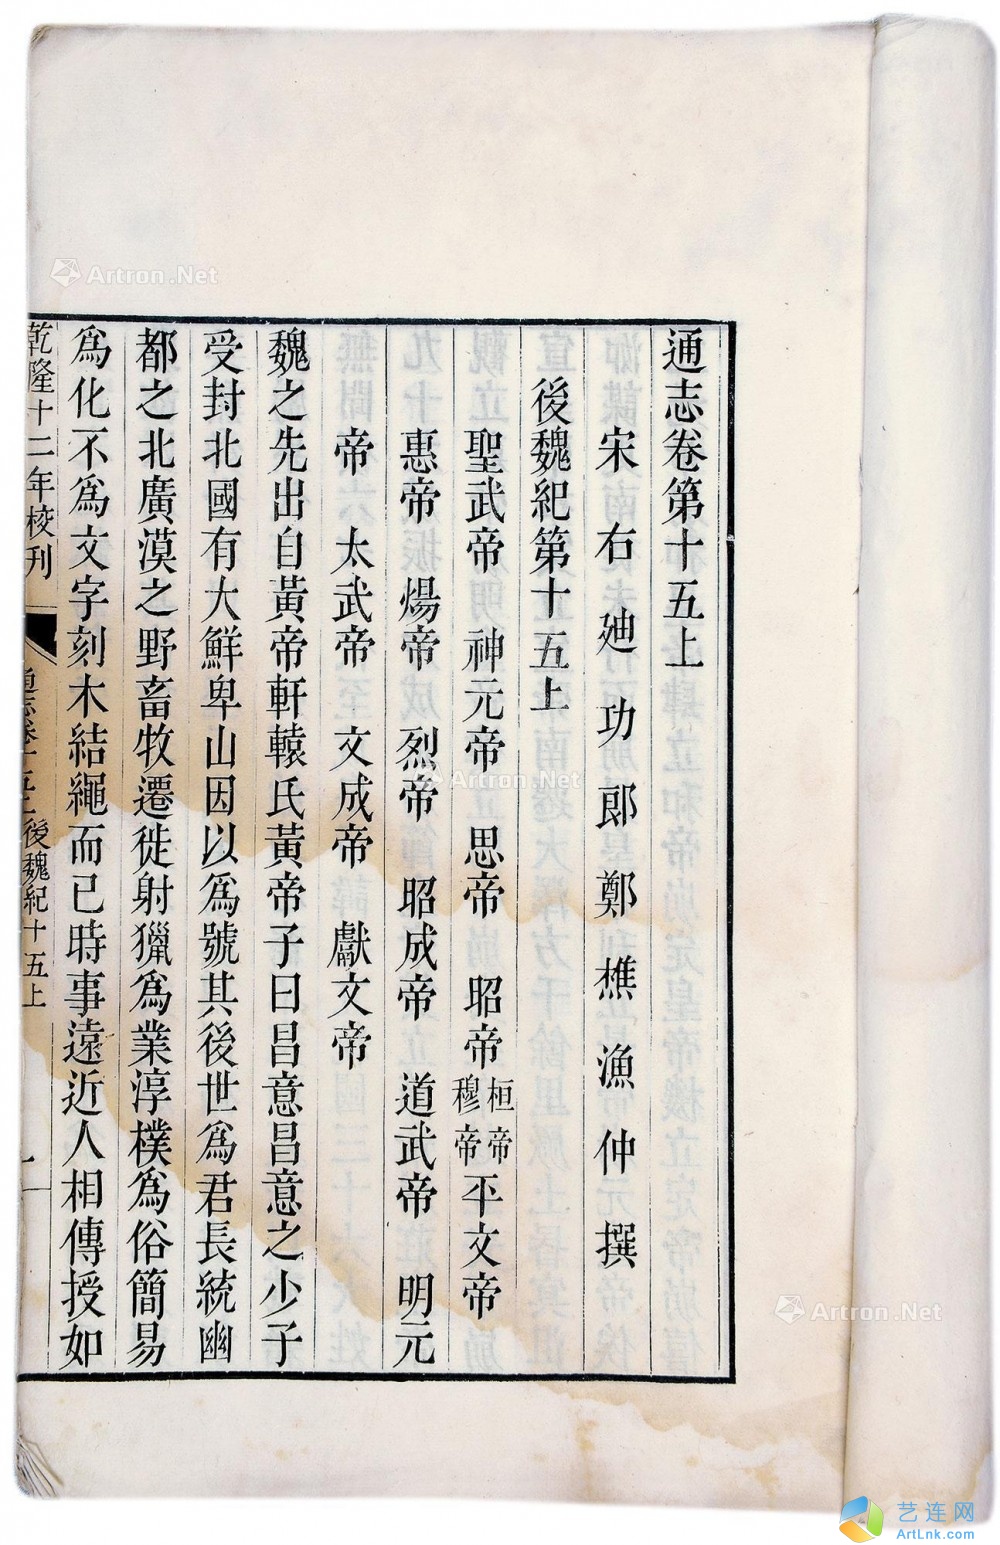 通志卷第十五上
宋右廸功郎鄭樵漁仲撰
後魏紀第十五上
聖武帝 神元帝 思帝 昭帝 桓帝 穆帝 平文帝
惠帝 煬帝 烈帝 昭成帝 道武帝 明元
帝 太武帝 文成帝 獻文帝
魏之先出自黃帝軒轅氏黃帝子曰昌意昌意之少子
受封北國有大鮮卑山因以爲號其後世爲君長統幽
都之北廣漠之野畜牧遷徙射獵爲業淳樸爲俗簡易
爲化不爲文字刻木結繩而已時事遠近人相傳授如
乾隆十二年校刊
通志卷十五上 後魏紀十五上
一
Artron.Net
Artron.Net
Artron.Net
艺连网
ArtLnk.com